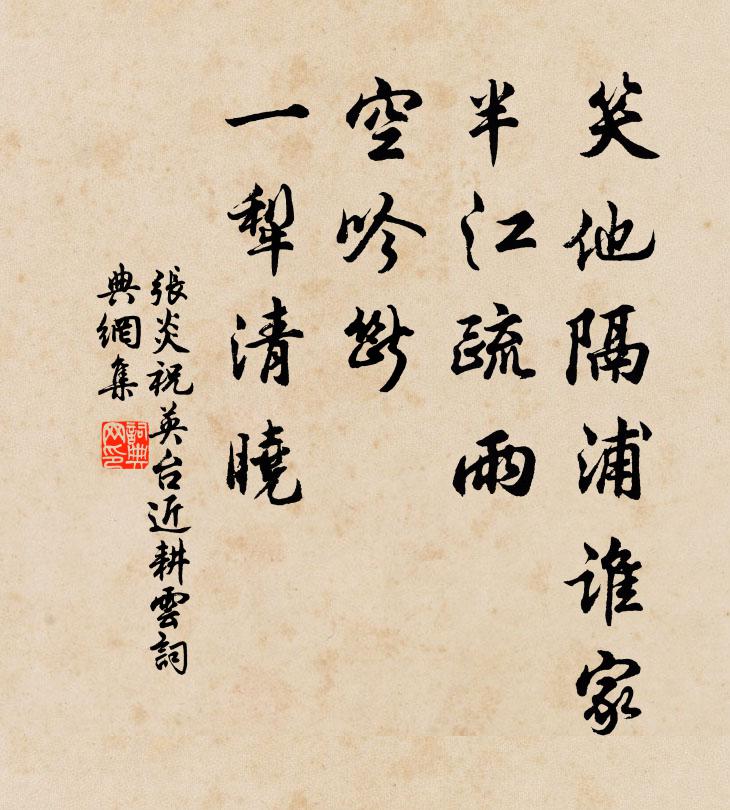 笑他隔浦誰家
半江疏雨
空吟斷
一犁清曉
張炎祝英台近耕雲詞
典網集
詞典网印